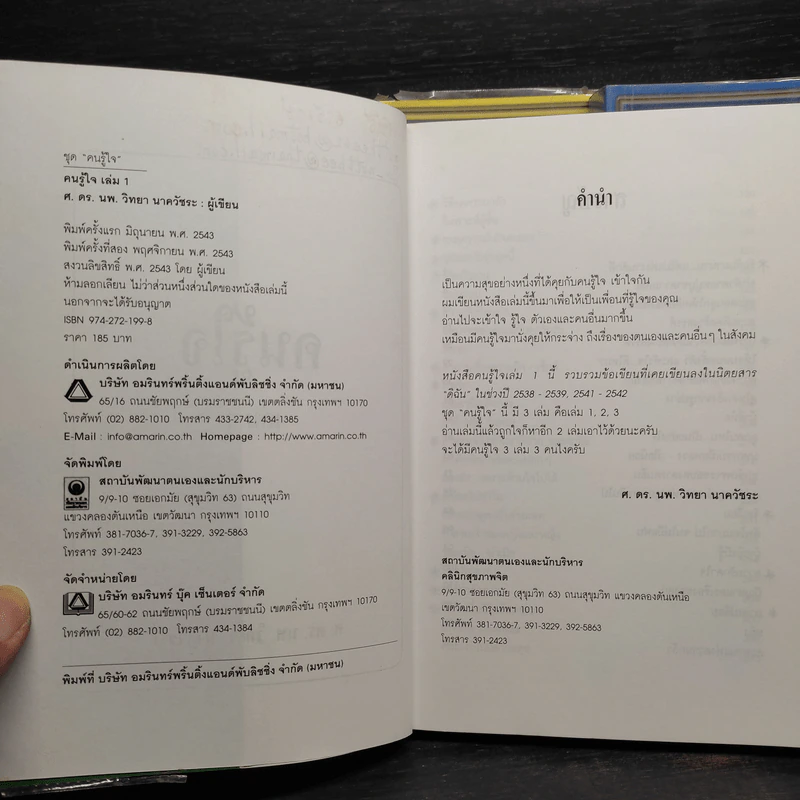 ชุด "คนรู้ใจ"
คนรู้ใจ เล่ม 1
ศ. ดร. นพ. วิทยา นาควัชระ : ผู้เขียน
พิมพ์ครั้งแรก มิถุนายน พ.ศ. 2543
พิมพ์ครั้งที่สอง พฤศจิกายน พ.ศ. 2543
สงวนลิขสิทธิ์ พ.ศ. 2543 โดย ผู้เขียน
ห้ามลอกเลียน ไม่ว่าส่วนหนึ่งส่วนใดของหนังสือเล่มนี้
นอกจากจะได้รับอนุญาต
ISBN 974-272-199-8
ราคา 185 บาท
ดำเนินการผลิตโดย
บริษัท อมรินทร์พริ้นติ้งแอนด์พับลิชชิ่ง จำกัด (มหาชน)
65/16 ถนนชัยพฤกษ์ (บรมราชชนนี) เขตตลิ่งชัน กรุงเทพฯ 10170
โทรศัพท์ (02) 882-1010 โทรสาร 433-2742, 434-1385
E-Mail : info@amarin.co.th Homepage : http://www.amarin.co.th
จัดพิมพ์โดย
สถาบันพัฒนาตนเองและนักบริหาร
9/9-10 ซอยเอกมัย (สุขุมวิท 63) ถนนสุขุมวิท
แขวงคลองตันเหนือ เขตวัฒนา กรุงเทพฯ 10110
โทรศัพท์ 381-7036-7, 391-3229, 392-5863
โทรสาร 391-2423
จัดจำหน่ายโดย
บริษัท อมรินทร์ บุ๊ค เซ็นเตอร์ จำกัด
65/60-62 ถนนชัยพฤกษ์ (บรมราชชนนี) เขตตลิ่งชัน กรุงเทพฯ 10170
โทรศัพท์ (02) 882-1010 โทรสาร 434-1384
พิมพ์ที่ บริษัท อมรินทร์พริ้นติ้งแอนด์พับลิชชิ่ง จำกัด (มหาชน)
คำนำ
เป็นความสุขอย่างหนึ่งที่ได้คุยกับคนรู้ใจ เข้าใจกัน
ผมเขียนหนังสือเล่มนี้ขึ้นมาเพื่อให้เป็นเพื่อนที่รู้ใจของคุณ
อ่านไปจะเข้าใจ รู้ใจ ตัวเองและคนอื่นมากขึ้น
เหมือนมีคนรู้ใจมานั่งคุยให้กระจ่าง ถึงเรื่องของตนเองและคนอื่นๆ ในสังคม
หนังสือคนรู้ใจเล่ม 1 นี้ รวบรวมข้อเขียนที่เคยเขียนลงในนิตยสาร
"ดิฉัน" ในช่วงปี 2538 - 2539, 2541 - 2542
ชุด "คนรู้ใจ" นี้ มี 3 เล่ม คือเล่ม 1, 2, 3
อ่านเล่มนี้แล้วถูกใจก็หาอีก 2 เล่มเอาไว้ด้วยนะครับ
จะได้มีคนรู้ใจ 3 เล่ม 3 คนไงครับ
ศ. ดร. นพ. วิทยา นาควัชระ
สถาบันพัฒนาตนเองและนักบริหาร
คลินิกสุขภาพจิต
9/9-10 ซอยเอกมัย (สุขุมวิท 63) ถนนสุขุมวิท แขวงคลองตันเหนือ
เขตวัฒนา กรุงเทพฯ 10110
โทรศัพท์ 381-7036-7, 391-3229, 392-5863
โทรสาร 391-2423